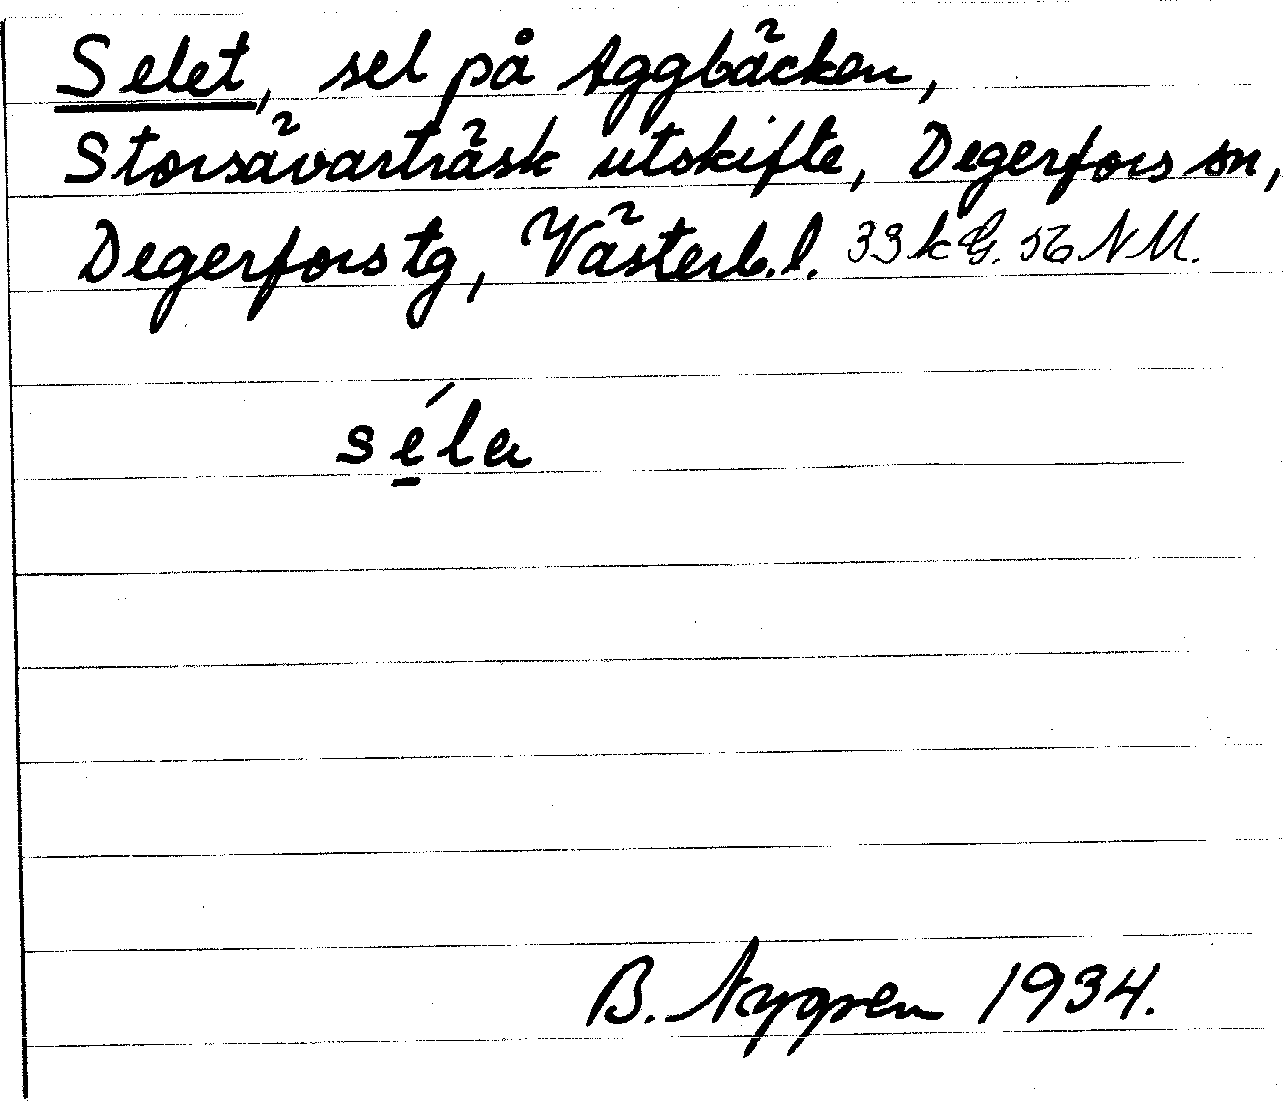 Selet, sel på Aggbäcken,
Storsävarträsk utskifte, Degerfors sn,
Degerfors tg, Västerb. l. 33 k G. 56 NM.
séla
B. Nygren 1934.